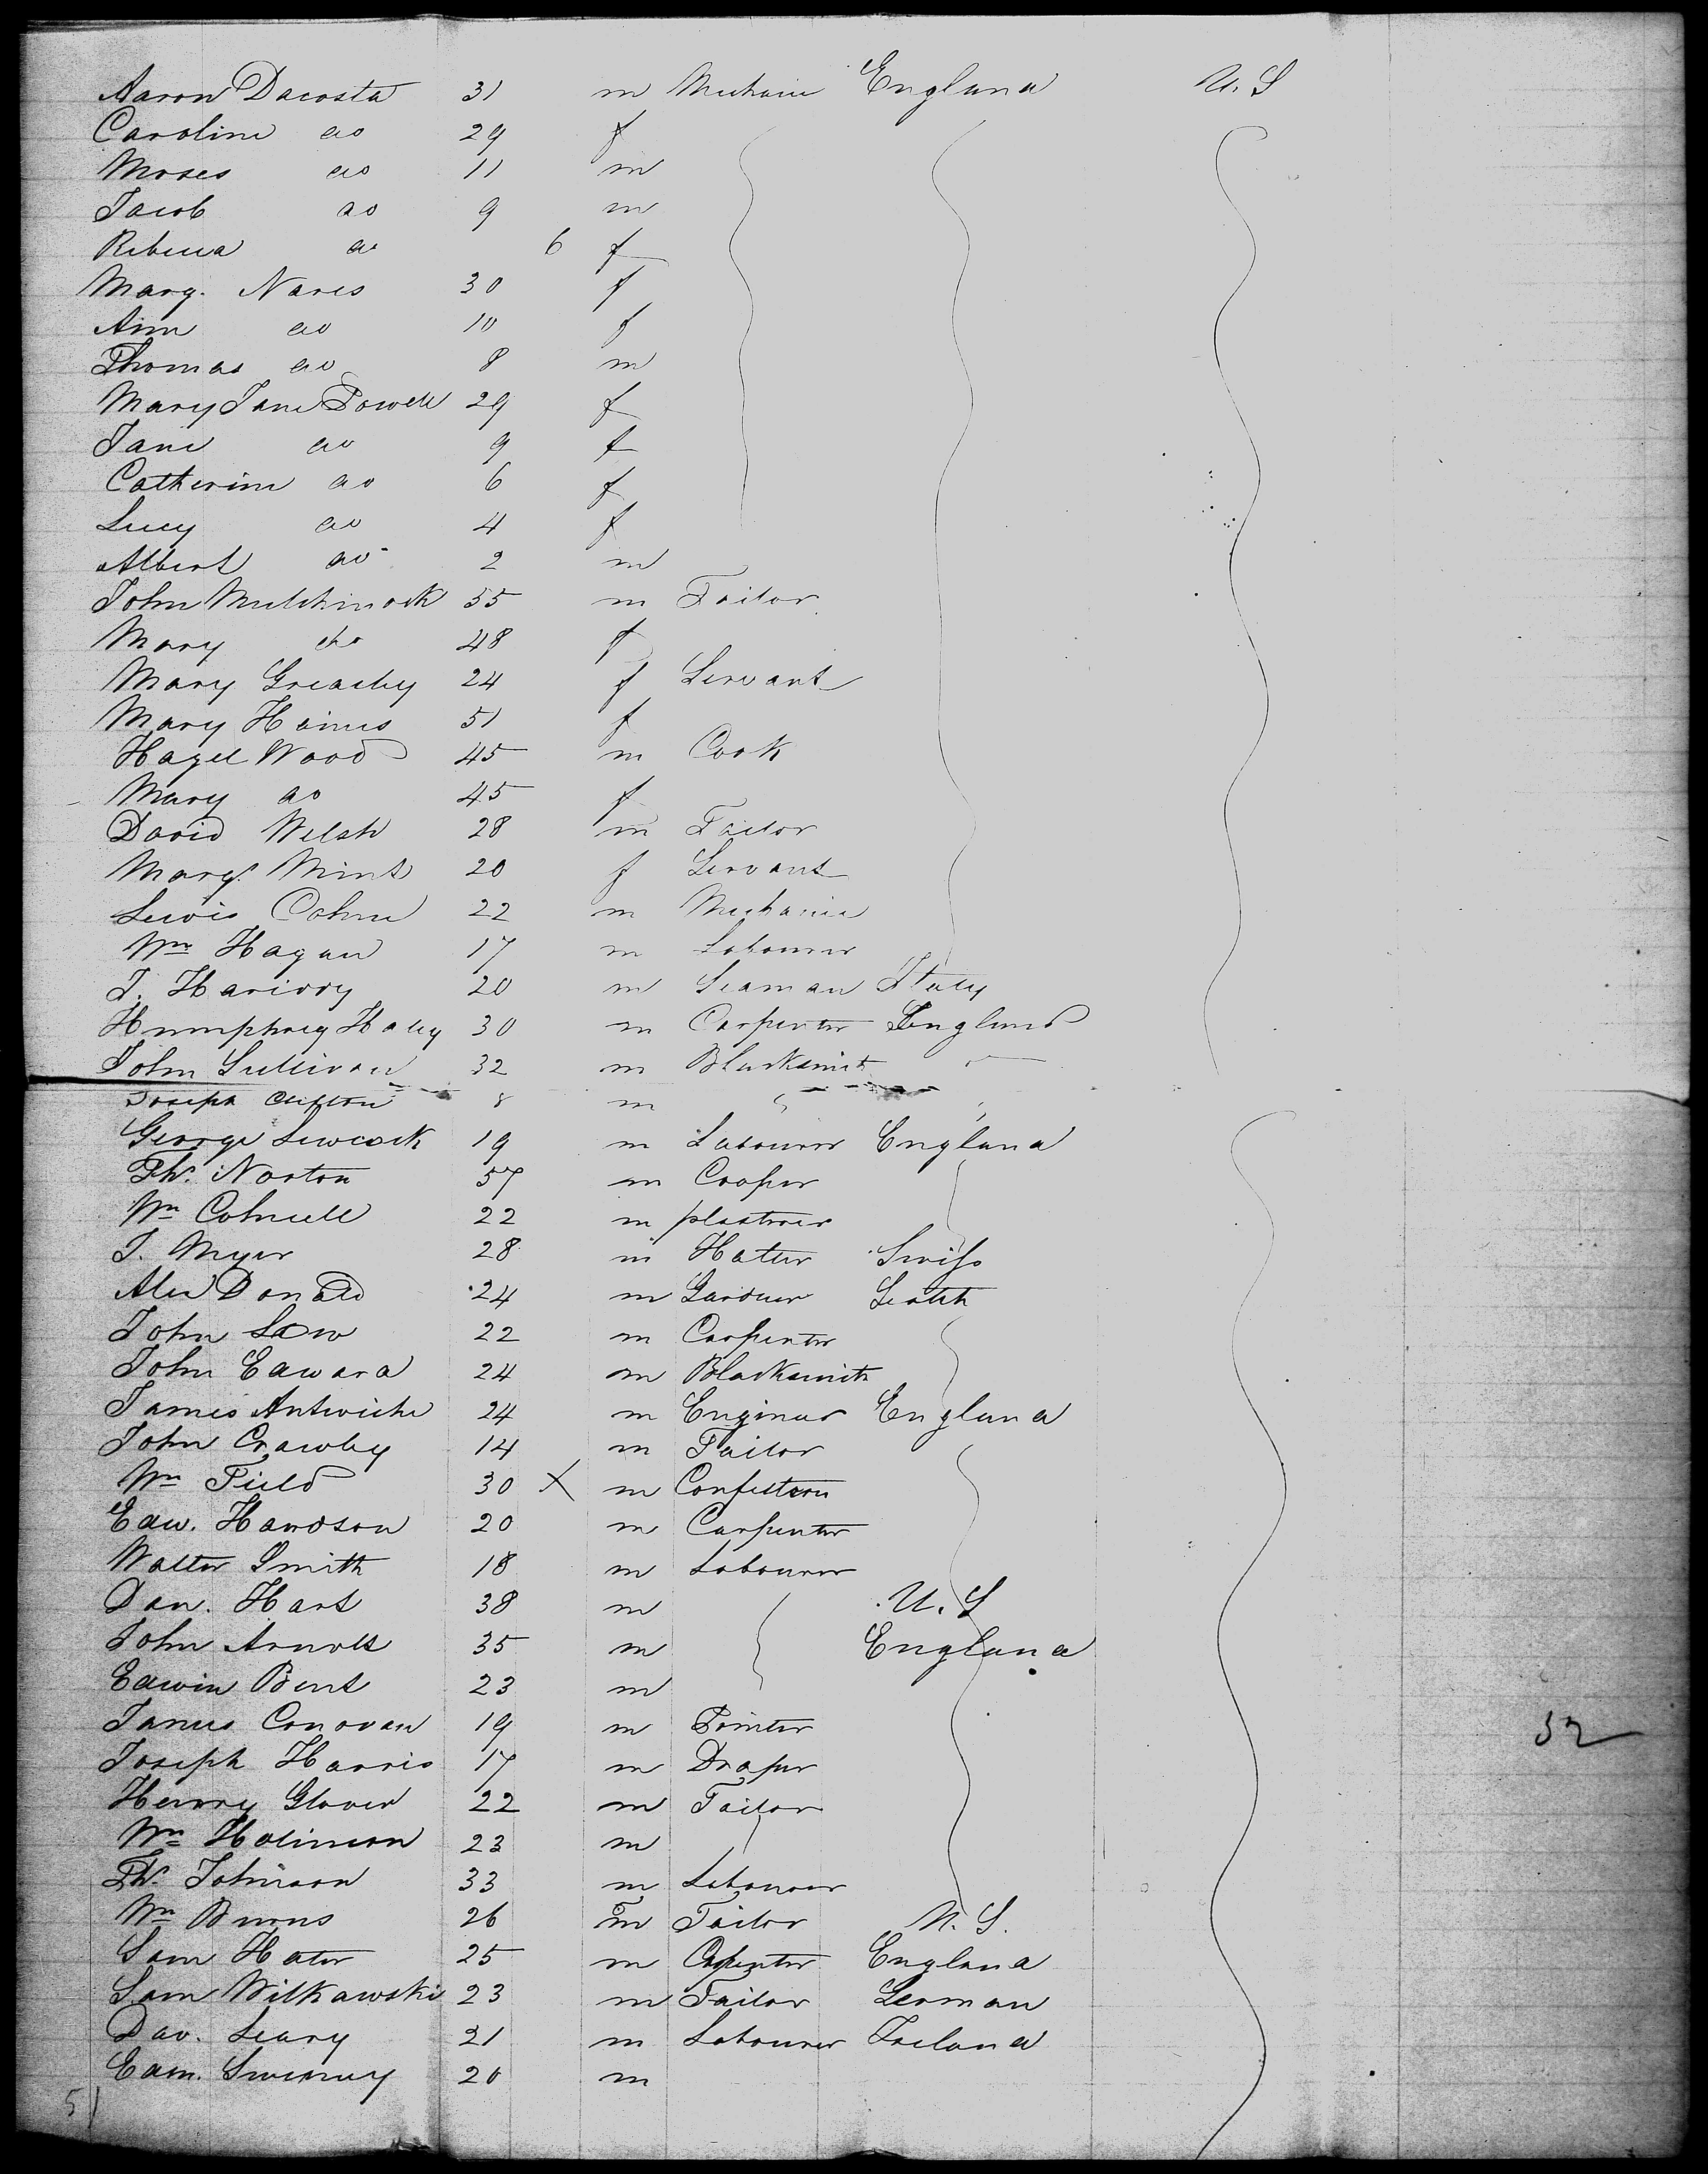 Aaron Dacosta 31 m Mechanic England U.S
Caroline do 29 f
Moses do 11 m
Jacob do 9 m
Rebecca do 6 f
Marg. Nares 30 f
Ann do 10 f
Thomas do 8 m
Mary Jane Powell 29 f
Jane do 9 f
Catherine do 6 f
Lucy do 4 f
Albert do 2 m
John Mutchinock 55 m Tailor
Mary do 48 f
Mary Greacley 24 f Servant
Mary Haines 51 f
Hazel Wood 45 m Cook
Mary do 45 f
David Welsh 28 m Tailor
Marg. Mint 20 f Servant
Lewis Cohne 22 m Mechanic
Wm Hagan 17 m Labourer
J. Harivvy 20 m Seaman Italy
Humphrey Haley 30 m Carpenter England
John Sullivan 32 m Blacksmith
Joseph Clifton 8 m
George Lewcock 19 m Labourer England
Th. Norton 57 m Cooper
Wm Cohnell 22 m plasterer
J. Meyer 28 m Hatter Swiss
Alex Donald 24 m Gardner Scotch
John Law 22 m Carpenter
John Edward 24 m Blacksmith
James Antwiche 24 m Engineer England
John Crawley 14 m Tailor
Wm Field 30 X m Confectioner
Edw. Hardson 20 m Carpenter
Walter Smith 18 m Labourer
Dan. Hart 38 m U.S
John Arnold 35 m England
Edwin Bent 23 m
James Conovan 19 m Painter
32
Joseph Harris 17 m Draper
Henry Glover 22 m Tailor
Wm Holinson 23 m
Th. Johnson 33 m Labourer
Wm Burns 26 m Tailor U.S.
Sam Hater 25 m Carpenter England
Sam Wilkawski 23 m Tailor German
Dav. Leary 21 m Labourer Ireland
Edm. Sweeney 20 m
51